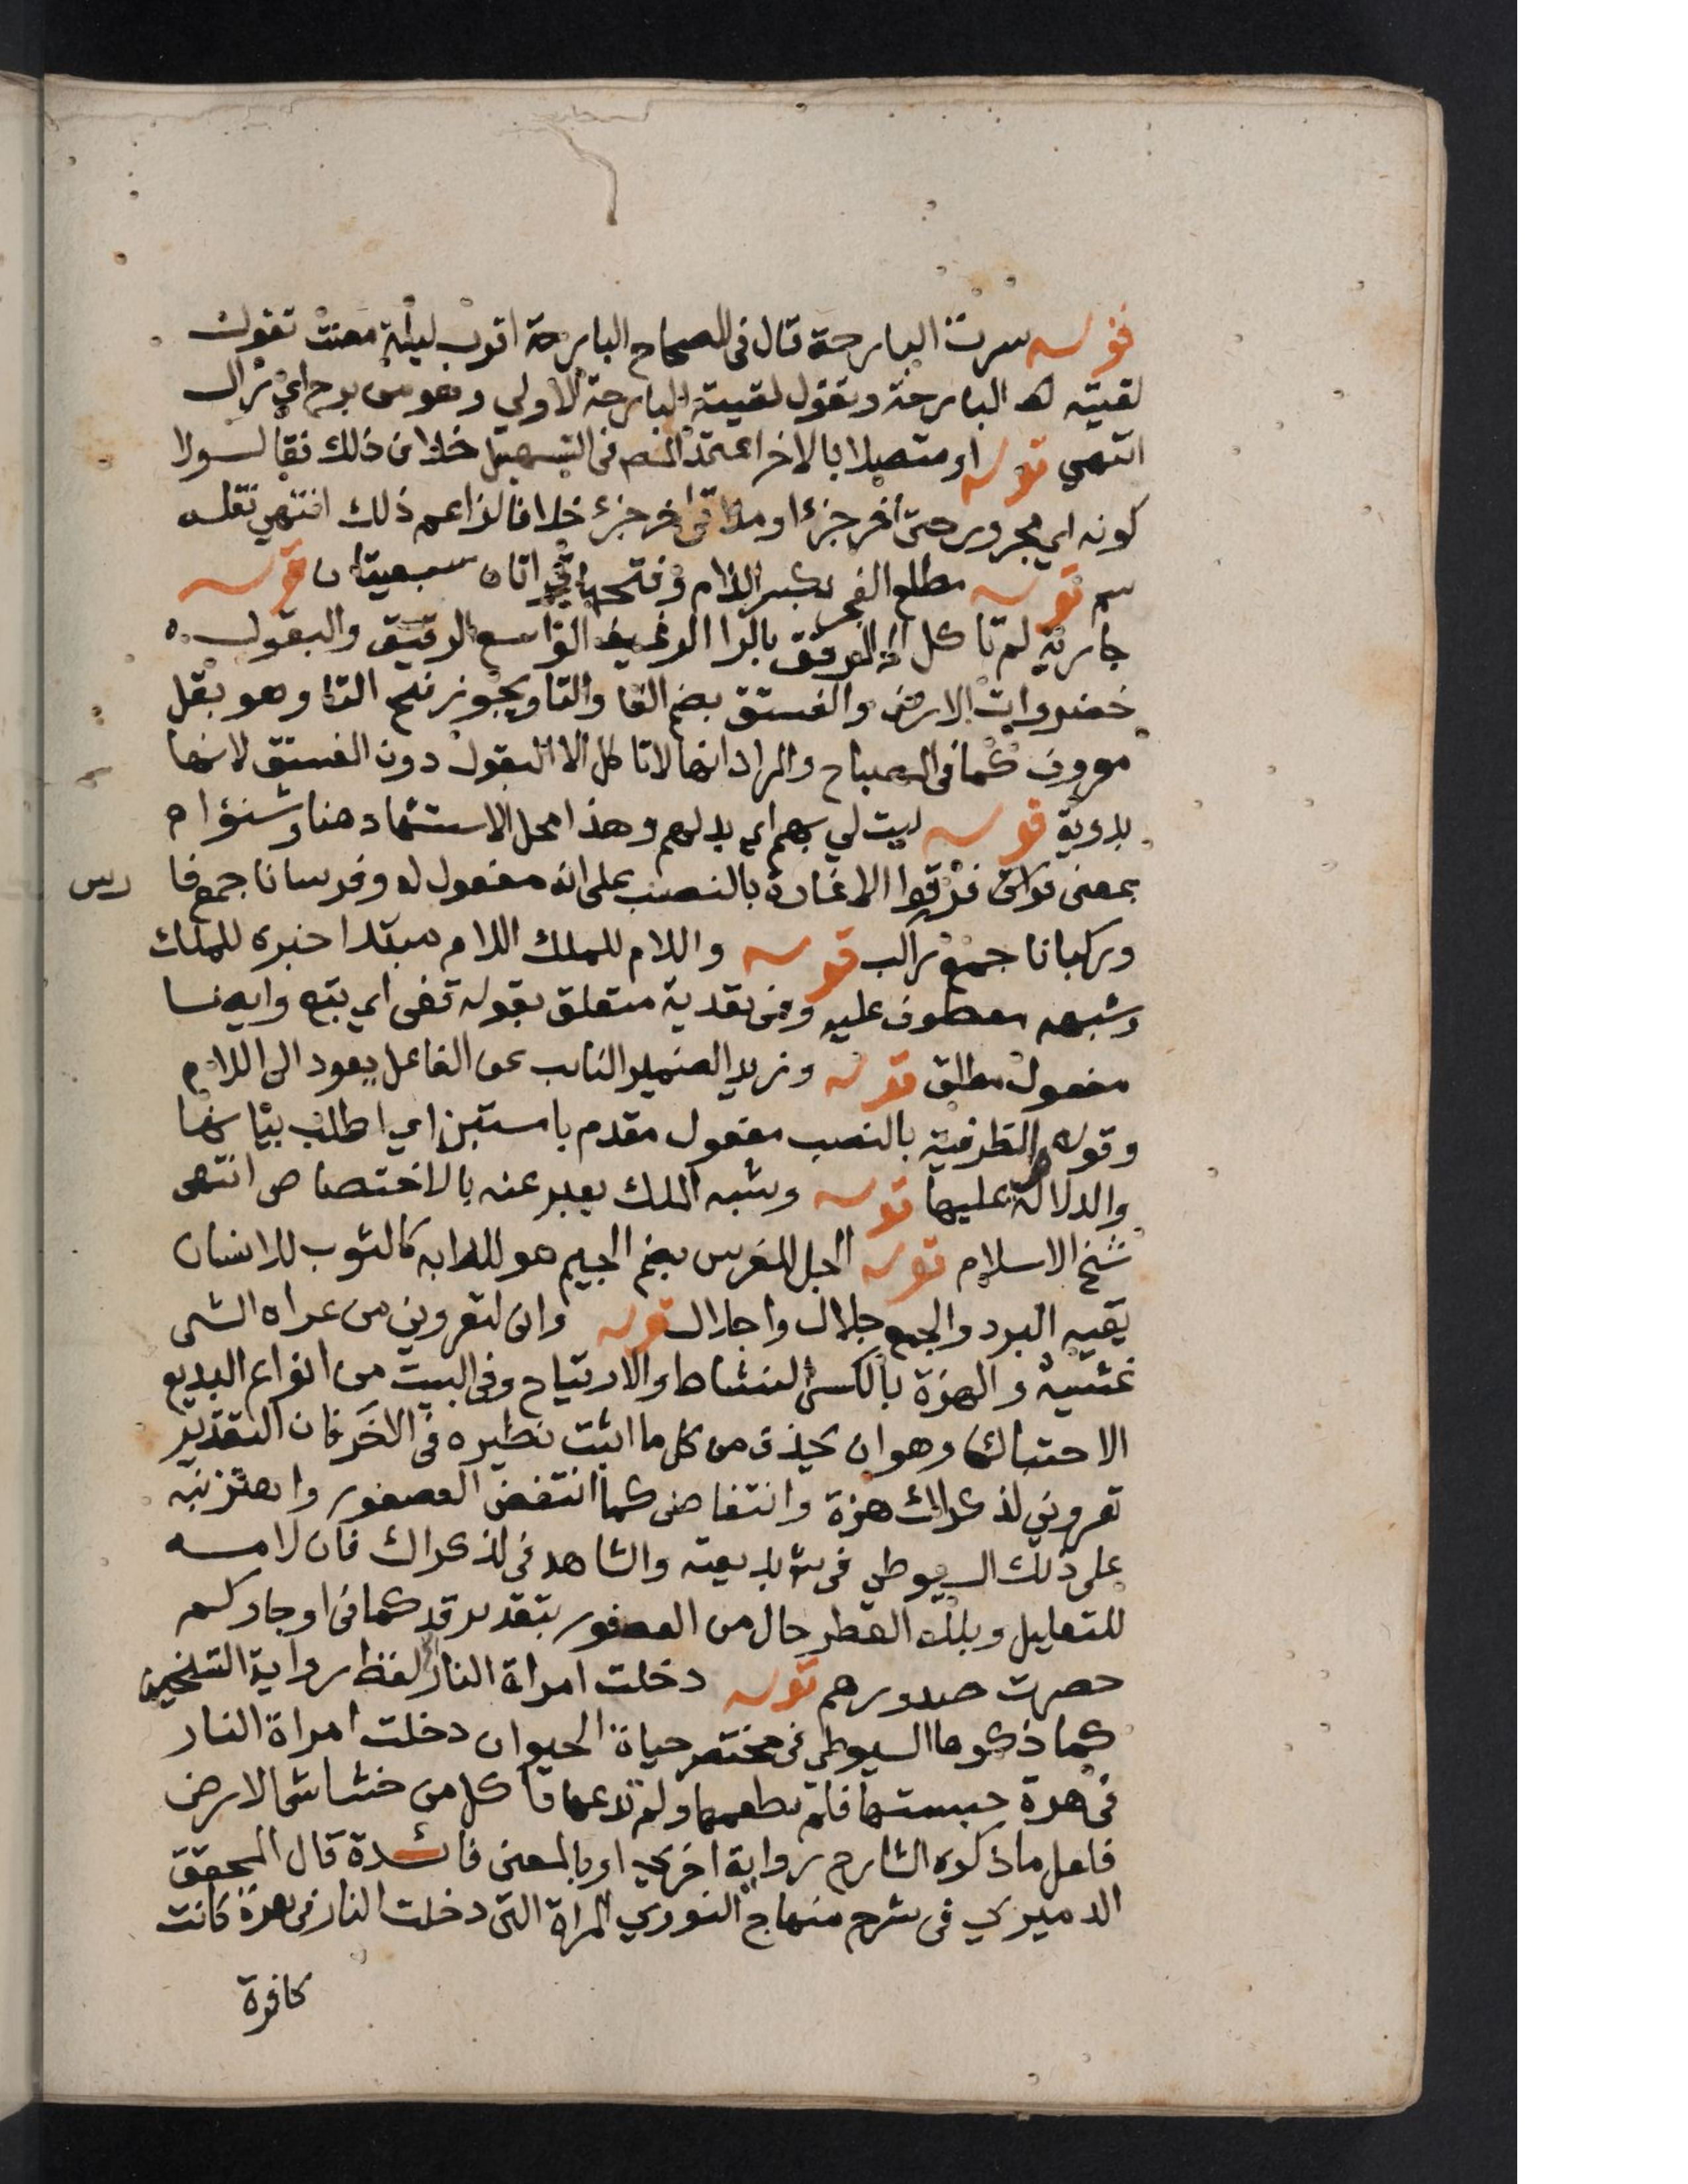 قوله سرت البارحة قال في الصحاح البارحة اقرب ليلة مضت تقول
لقيته البارحة وتقول لقيته البارحة الاولي وهو من برح اي زال
انتهي قوله او متصلا بالاخر اعتمد المص في التسهيل خلاف ذلك فقال ولا
كونه اي مجرور حتى آخر جزء او ملاقى اخر جزء خلافا لزاعم ذلك انتهي نقله
سم قوله مطلع الفجر بكسر اللام وفتحها قراتان سبعيتان قوله
جارية لم تاكل المرقق بالرا الرغيف الواسع الرقيق والبقول
خضروات الارض والفستق بضم الفا والتا ويجوز فتح التا وهو بقل
معروف كما في المصباح والمراد انها لا تاكل الا البقول دون الفستق لانها
بدوية قوله ليت لي بهم اي بدلهم وهذا محل الاستشهاد هنا وشنوا
بمعنى فرقوا الاغارة بالنصب على انه مفعول له وفرسانا جمع فا رس
وركبانا جمع راكب قوله واللام للملك اللام مبتدا خبره للملك
وشبهه معطوف عليه وفي تعدية متعلق بقوله قفى اي بتبع وايضا
مفعول مطلق قوله وزيد الضمير النائب عن الفاعل يعود الى اللام
وقوله والظرفية بالنصب مفعول مقدم باستبن اي اطلب بيانها
والدلالة عليها قوله وشبه الملك يعبر عنه بالاختصاص انتهى
شيخ الاسلام قوله الجل للفرس بضم الجيم هو للدابه كالثوب للانسان
يقيه البرد والجمع جلال واجلال قوله وانى لتعروني من عراه الشى
غشيه والهزة بالكسر النشاط والارتياح وفي البيت من انواع البديع
الاحتباك وهو ان يحذف من كل ما اثبت نظيره في الآخر فان التقدير
تعروني لذكراك هزة وانتفاض كما انتفض العصفور واهتز نبه
على ذلك السيوطي في بديعيته والشاهد في لذكراك فان لامه
للتعليل وبلله القطر حال من العصفور بتقدير قد كما في اوجاوكم
حصرت صدورهم قوله دخلت امراة النار لفظ رواية الشيخين
كما ذكرها السيوطي في مختصر حياة الحيوان دخلت امراة النار
في هرة حبستها فلم تطعمها ولم تدعها تاكل من خشاش الارض
فلعل ما ذكره الشارح رواية اخرى او بالمعنى فائدة قال المحقق
الدميري في شرح منهاج النووي المراة التى دخلت النار في هرة كانت
كافرة